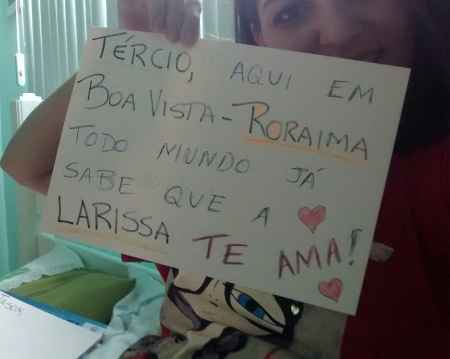 TÉRCIO, AQUI EM
BOA VISTA - RORAIMA
TODO MUNDO JÁ
SABE QUE A
LARISSA TE AMA!